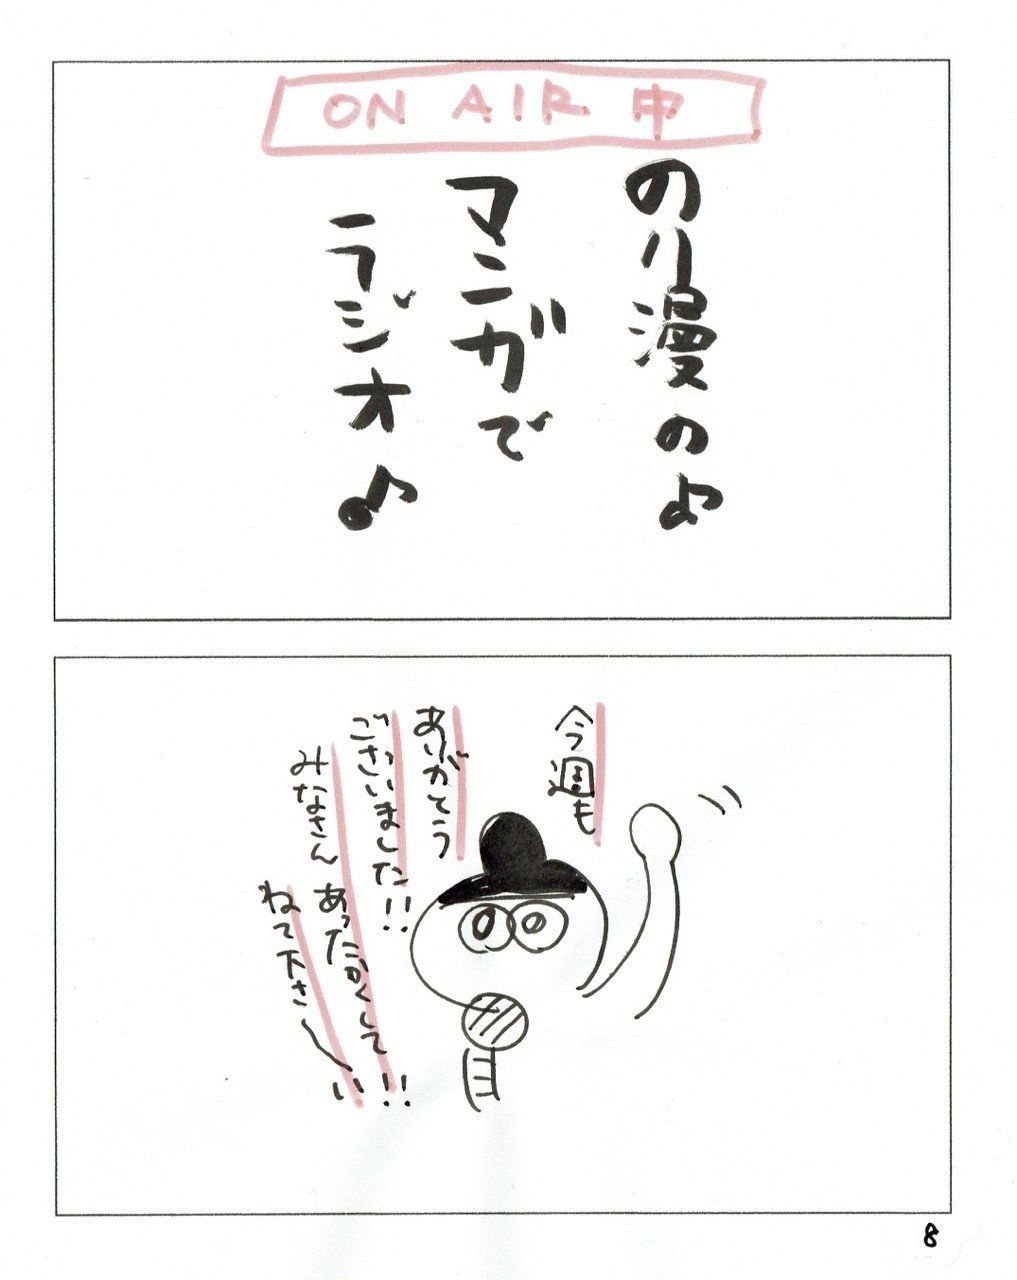 ON AIR 中
のり漫の♪
マンガで
ラジオ♪
今週も
ありがとう
ございました!!
みなさん あったかくして!!
ねて下さーい
8